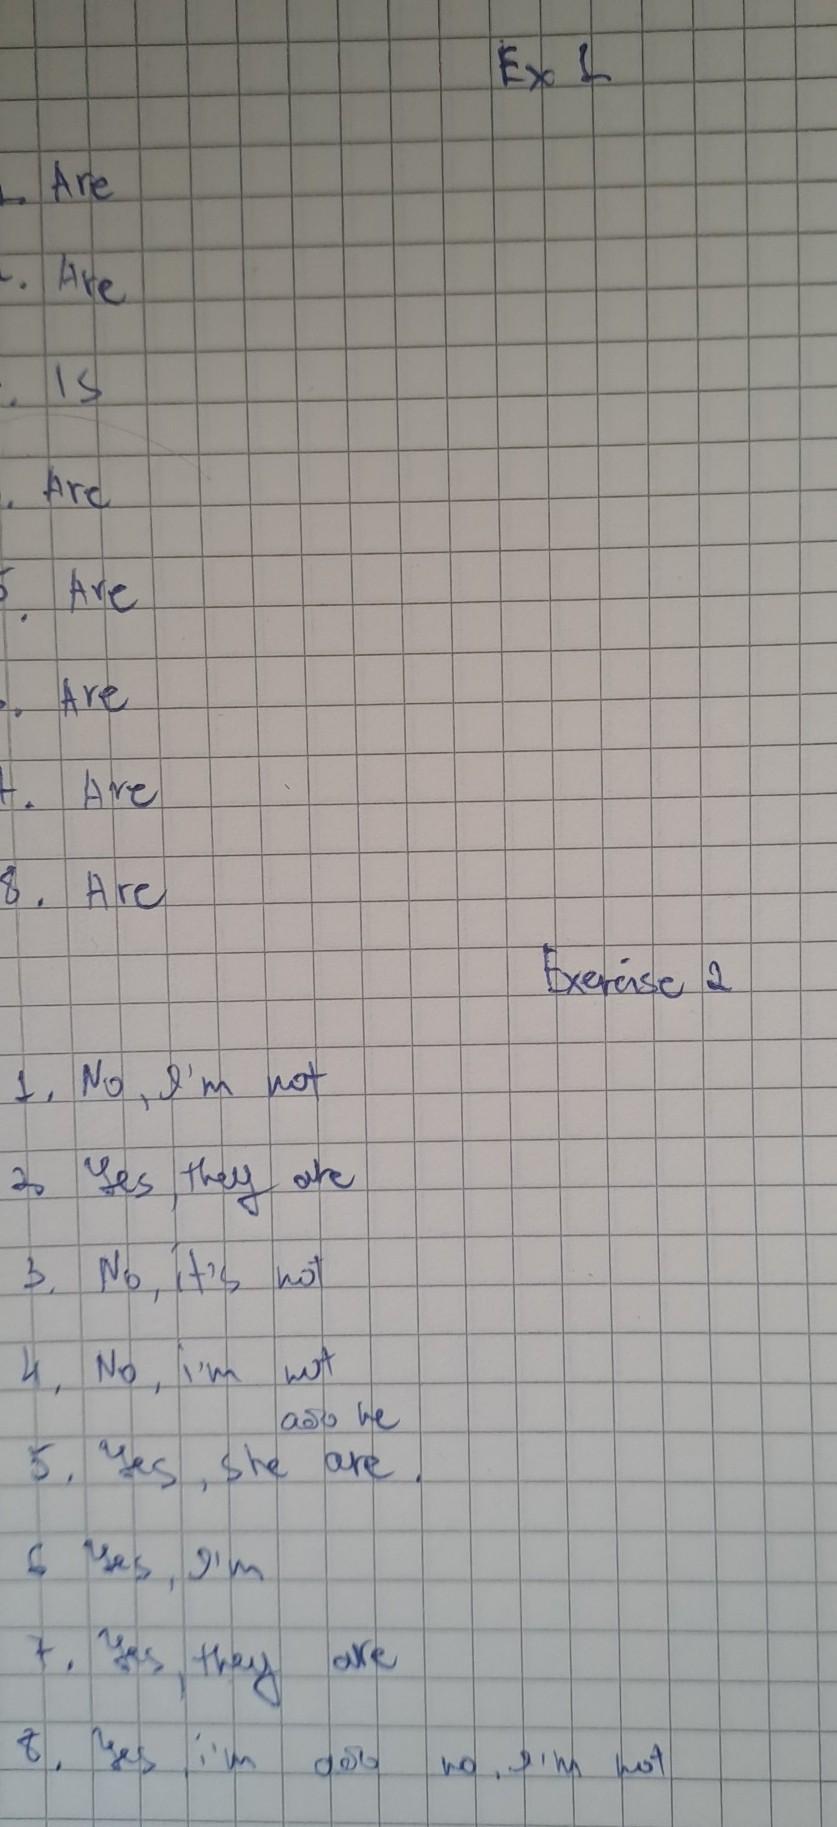 Ex 1
1. Are
. Are
. Is
. Are
5. Are
. Are
7. Are
8. Are
Exercise 2
1. No, I'm not
2. Yes, they are
3. No, it's not
4. No, i'm not
albo he
5. Yes, she are.
6 Yes, I'm
7. Yes, they are
8. Yes, i'm albo no, I'm not